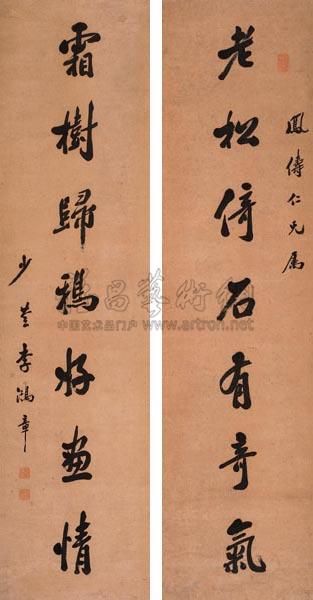 鳳儔仁兄屬
老松倚石有奇氣
霜樹歸鴉好畫情
少荃李鴻章
雅昌藝術網
中国艺术品门户 www.artron.net